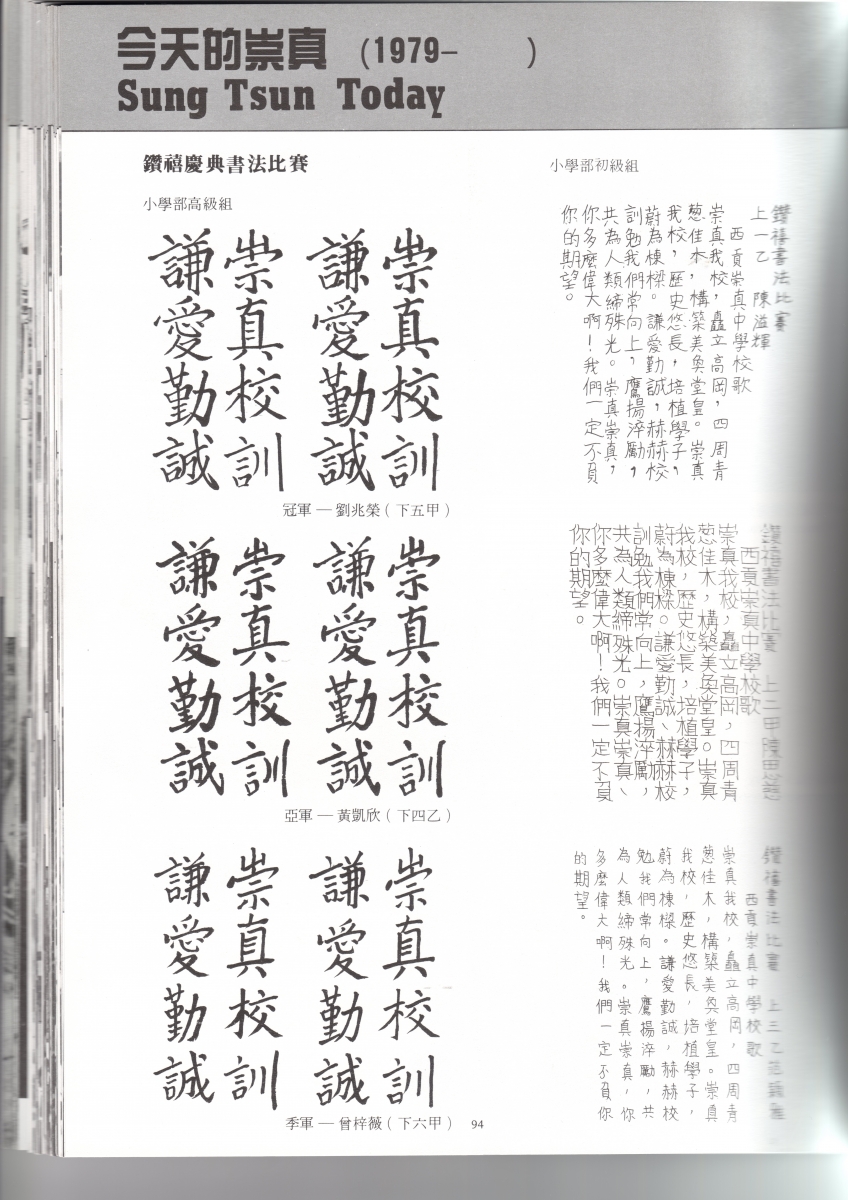 今天的崇真 (1979– )
Sung Tsun Today
鑽禧慶典書法比賽
小學部高級組
崇真校訓
謙愛勤誠
崇真校訓
謙愛勤誠
冠軍 — 劉兆榮(下五甲)
崇真校訓
謙愛勤誠
崇真校訓
謙愛勤誠
亞軍 — 黃凱欣(下四乙)
崇真校訓
謙愛勤誠
崇真校訓
謙愛勤誠
季軍 — 曾梓薇(下六甲)
小學部初級組
鑽禧書法比賽
上一乙 陳溢輝
西貢崇真中學校歌
崇真我校,矗立高岡,四周青
葱佳木,構築美奐堂皇。崇真
我校,歷史悠長,培植學子,
蔚為棟樑。謙愛勤誠,赫赫校
訓勉我們常向上,鷹揚淬勵,
共為人類締殊光。崇真崇真,
你多麼偉大啊!我們一定不負
你的期望。
鑽禧書法比賽 上二甲
西貢崇真中學校歌
崇真我校,矗立高岡,四周青
葱佳木,構築美奐堂皇。崇真
我校,歷史悠長,培植學子,
蔚為棟樑。謙愛勤誠、赫赫校
訓勉我們常向上,鷹揚淬勵,
共為人類締殊光。崇真崇真、
你多麼偉大啊!我們一定不負
你的期望。
鑽禧書法比賽 上三乙
西貢崇真中學校歌
崇真我校,矗立高岡,四周青
葱佳木,構築美奐堂皇。崇真
我校,歷史悠長,培植學子,
蔚為棟樑。謙愛勤誠,赫赫校
勉我們常向上,鷹揚淬勵,共
為人類締殊光。崇真崇真,你
多麼偉大啊!我們一定不負你
的期望。
94